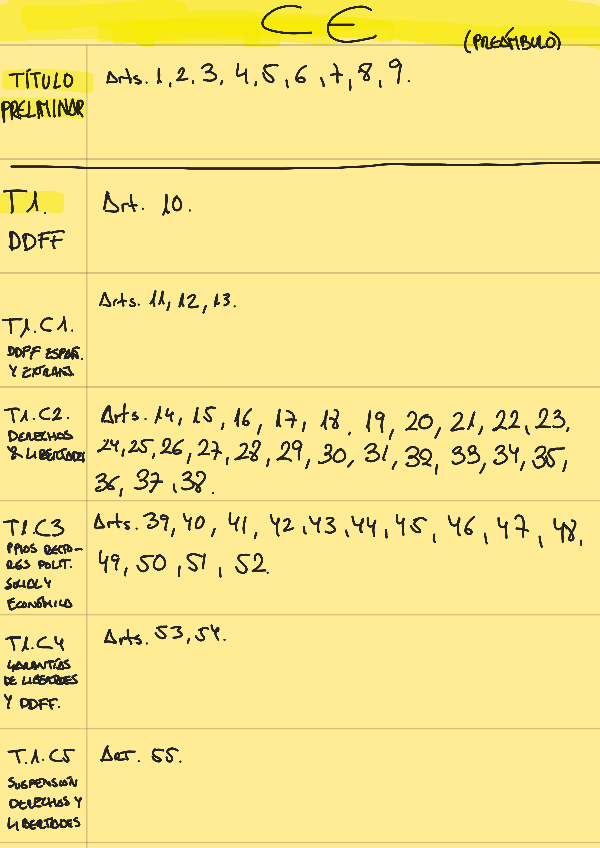 CE
(PREÁMBULO)
TÍTULO
PRELIMINAR
Arts. 1, 2, 3, 4, 5, 6, 7, 8, 9.
T1.
DDFF
Art. 10.
Arts. 11, 12, 13.
T1.C1.
DDFF ESPAÑ.
Y EXTRANJ.
T1.C2.
DERECHOS
Y LIBERTADES
Arts. 14, 15, 16, 17, 18, 19, 20, 21, 22, 23,
24, 25, 26, 27, 28, 29, 30, 31, 32, 33, 34, 35,
36, 37, 38.
T1.C3
PPIOS RECTO-
RES POLIT.
SOCIAL Y
ECONÓMICA
Arts. 39, 40, 41, 42, 43, 44, 45, 46, 47, 48,
49, 50, 51, 52.
T1.C4
GARANTÍAS
DE LIBERTADES
Y DDFF.
Arts. 53, 54.
T.1.C5
SUSPENSIÓN
DERECHOS Y
LIBERTADES
ART. 55.